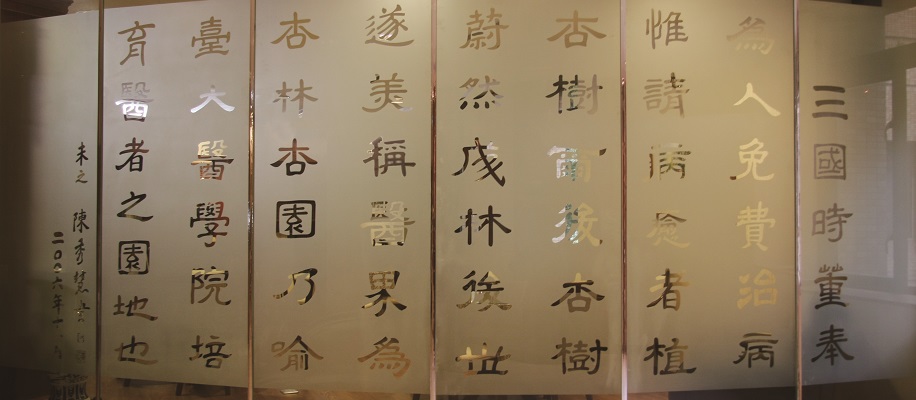 三國時董奉
為人免費治病
惟請病痊者植
杏樹爾後杏樹
蔚然成林後世
遂美稱醫界為
杏林杏園乃喻
臺大醫學院培
育醫者之園地也
未之 陳秀慧
二00六年一